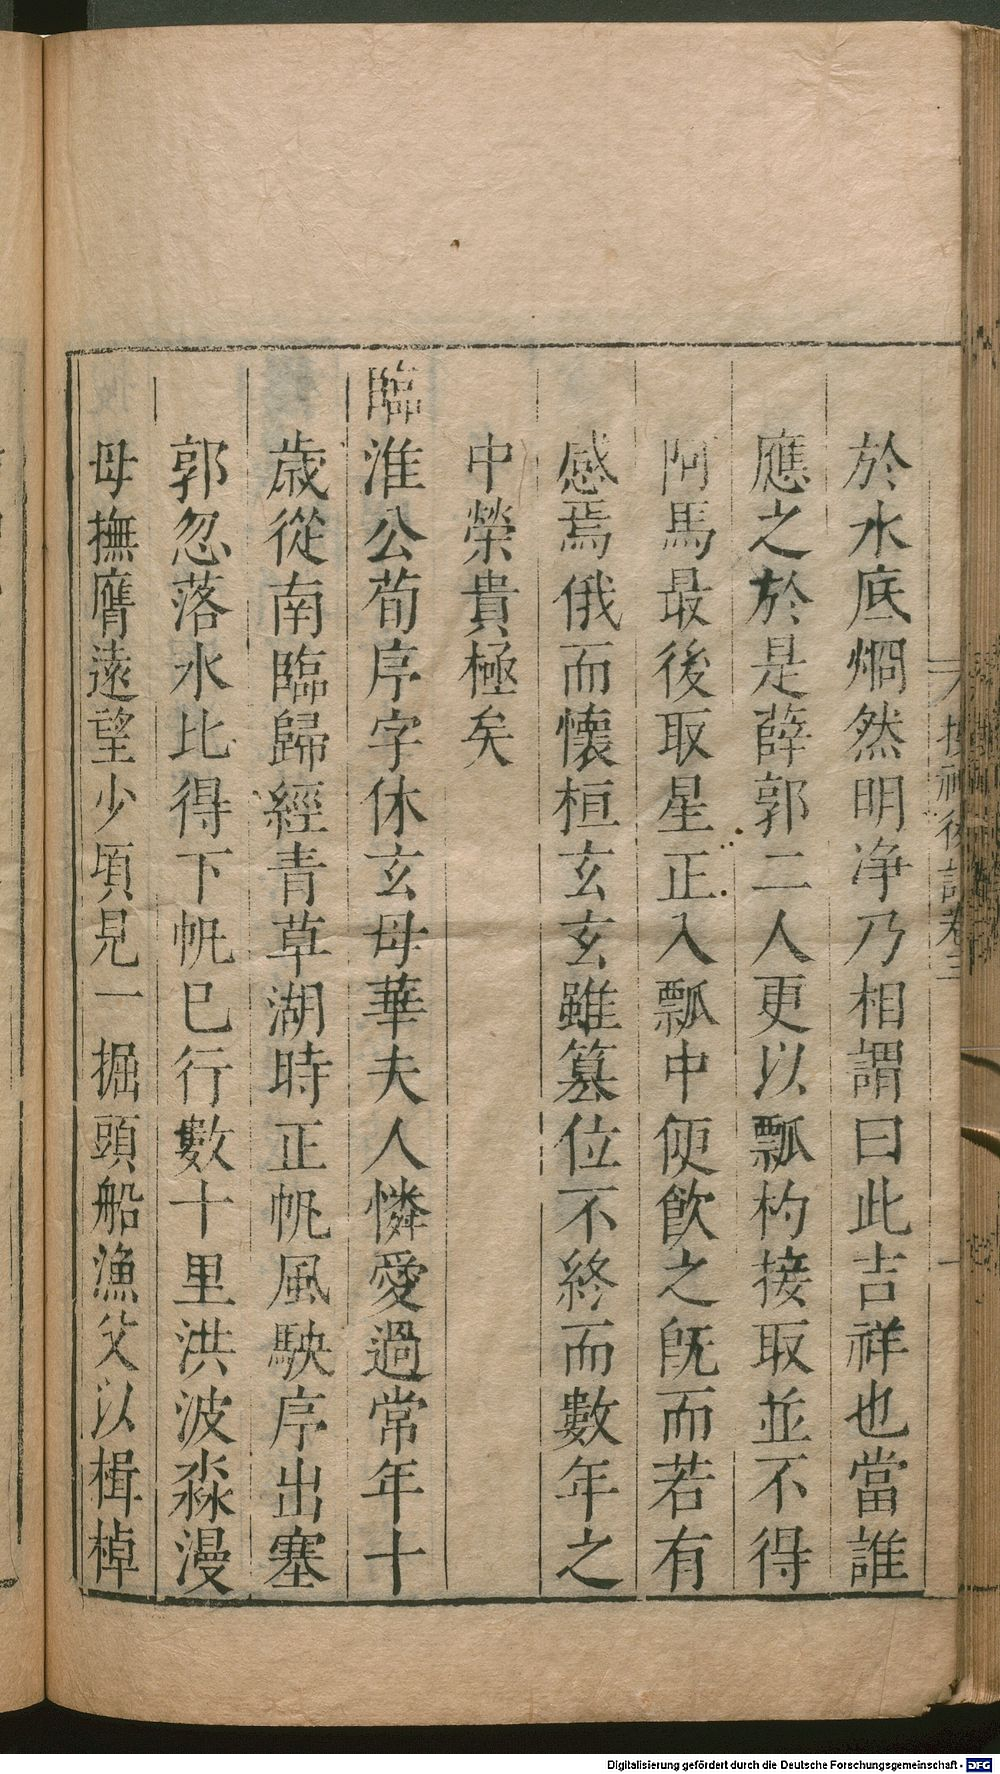 於水底烱然明净乃相謂曰此吉祥也當誰
應之於是薛郭二人更以瓢杓接取並不得
阿馬最後取星正入瓢中便飲之旣而若有
感焉俄而懷桓玄玄雖篡位不終而數年之
中榮貴極矣
臨淮公荀序字休玄母華夫人憐愛過常年十
歲從南臨歸經青草湖時正帆風駛序出塞
郭忽落水比得下帆巳行數十里洪波淼漫
母撫膺遠望少頃見一掘頭船漁父以楫棹
Digitalisierung gefördert durch die Deutsche Forschungsgemeinschaft - DFG